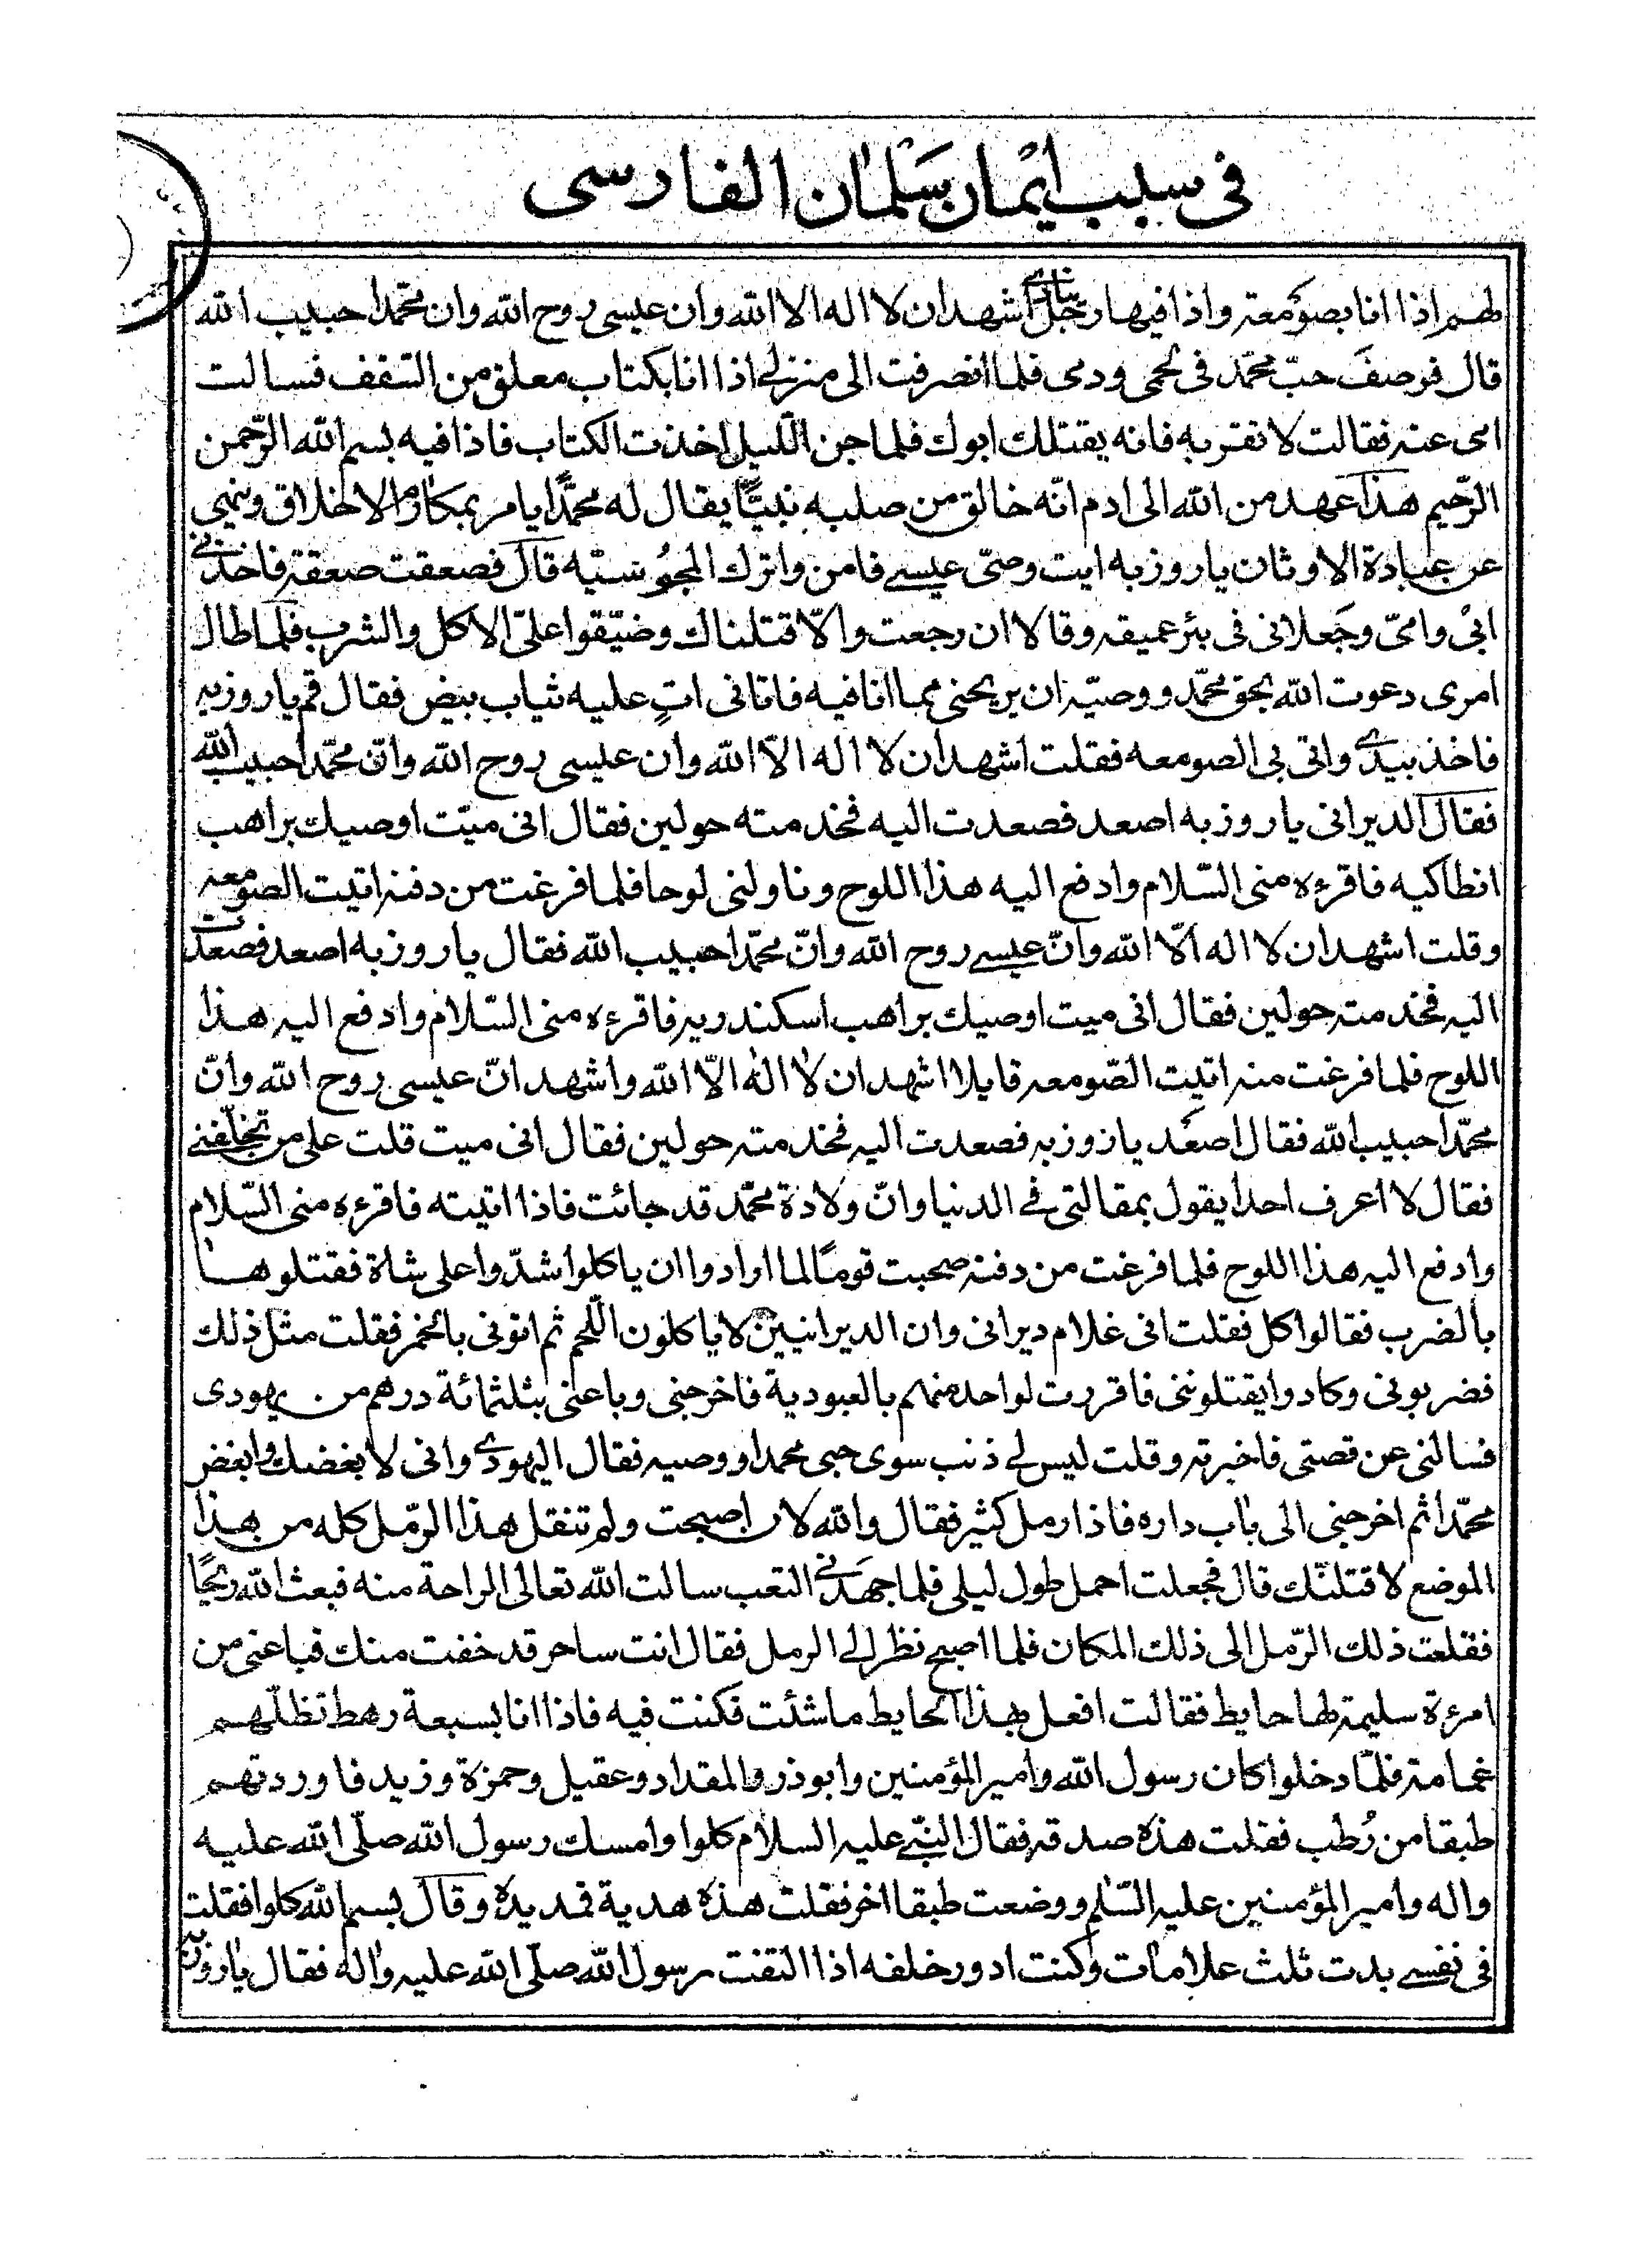 فى سبب ايمان سلمان الفارسى
لهم اذا انا بصومعة واذا فيها رجل ينادى اشهد ان لا اله الا الله وان عيسى روح الله وان محمدا حبيب الله
قال فوصف حبّ محمّد فى لحمى ودمى فلما انصرفت الى منزلى اذا انا بكتاب معلق من السقف فسالت
امى عنه فقالت لا تقربه فانه يقتلك ابوك فلما جن اللّيل اخذت الكتاب فاذا فيه بسم الله الرّحمن
الرّحيم هذا عهد من الله الى ادم انّه خالق من صلبه نبيّا يقال له محمّدا يامر بمكارم الاخلاق وينهى
عن عبادة الاوثان يا روزبه ايت وصىّ عيسى فامن واترك المجوسيّه قال فصعقت صعقة فاخذنى
ابى وامىّ وجعلانى فى بئر عميقه وقالا ان رجعت والّا قتلناك وضيّقوا علىّ الاكل والشرب فلما طال
امرى دعوت الله بحق محمّد ووصيّه ان يريحنى مما انا فيه فاتانى اتٍ عليه ثياب بيض فقال قم يا روزبه
فاخذ بيدى واتى بى الصومعه فقلت اشهد ان لا اله الّا الله وان عيسى روح الله وانّ محمّدا حبيب الله
فقال الديرانى يا روزبه اصعد فصعدت اليه فخدمته حولين فقال انى ميّت اوصيك براهب
انطاكيه فاقرءه منى السّلام وادفع اليه هذا اللوح وناولنى لوحا فلما فرغت من دفنه اتيت الصومعه
وقلت اشهد ان لا اله الّا الله وانّ عيسى روح الله وانّ محمّدا حبيب الله فقال يا روزبه اصعد فصعدت
اليه فخدمته حولين فقال انى ميت اوصيك براهب اسكندريه فاقرءه منى السّلام وادفع اليه هذا
اللوح فلما فرغت منه اتيت الصّومعه قايلا اشهد ان لا اله الّا الله واشهد انّ عيسى روح الله وانّ
محمّدا حبيب الله فقال اصعد يا روزبه فصعدت اليه فخدمته حولين فقال انى ميت قلت على من تخلّفنى
فقال لا اعرف احدا يقول بمقالتى فى الدنيا وانّ ولادة محمّد قد جائت فاذا اتيته فاقرءه منى السّلام
وادفع اليه هذا اللوح فلما فرغت من دفنه صحبت قومًا لما ارادوا ان ياكلوا شدّوا على شاة فقتلوها
بالضرب فقالوا كل فقلت انى غلام ديرانى وان الديرانيين لا ياكلون اللّحم ثم اتونى بالخمر فقلت مثل ذلك
فضربونى وكادوا يقتلوننى فاقررت لواحد منهم بالعبودية فاخرجنى وباعنى بثلثمائة درهم من يهودى
فسالنى عن قصتى فاخبرته وقلت ليس لى ذنب سوى حبى محمدا ووصيه فقال اليهودى وانى لابغضك وابغض
محمّدا ثم اخرجنى الى باب داره فاذا رمل كثير فقال والله لان اصبحت ولم تنقل هذا الرّمل كله من هذا
الموضع لاقتلنّك قال فجعلت احمل طول ليلى فلما اجهدنى التعب سالت الله تعالى الراحة منه فبعث الله ريحًا
فقلعت ذلك الرّمل الى ذلك المكان فلما اصبح نظر الى الرمل فقال انت ساحر قد خفت منك فباعنى من
امرءة سليمة لها حايط فقالت افعل بهذا الحايط ما شئت فكنت فيه فاذا انا بسبعة رهط تظلّهم
غمامة فلمّا دخلوا كان رسول الله وامير المؤمنين وابوذر والمقداد وعقيل وحمزة وزيد فاوردتهم
طبقا من رُطب فقلت هذه صدقه فقال النبّى عليه السلام كلوا وامسك رسول الله صلّى الله عليه
واله وامير المؤمنين عليه السّلم ووضعت طبقا اخر فقلت هذه هدية فمد يده وقال بسم الله كلوا فقلت
فى نفسى بدت ثلث علامات وكنت ادور خلفه اذا التفت رسول الله صلّى الله عليه واله فقال يا روزبه